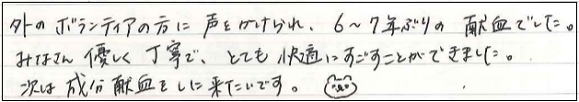 外のボランティアの方に声をかけられ、6～7年ぶりの献血でした。
みなさん優しく丁寧で、とても快適にすごすことができました。
次は成分献血をしに来たいです。